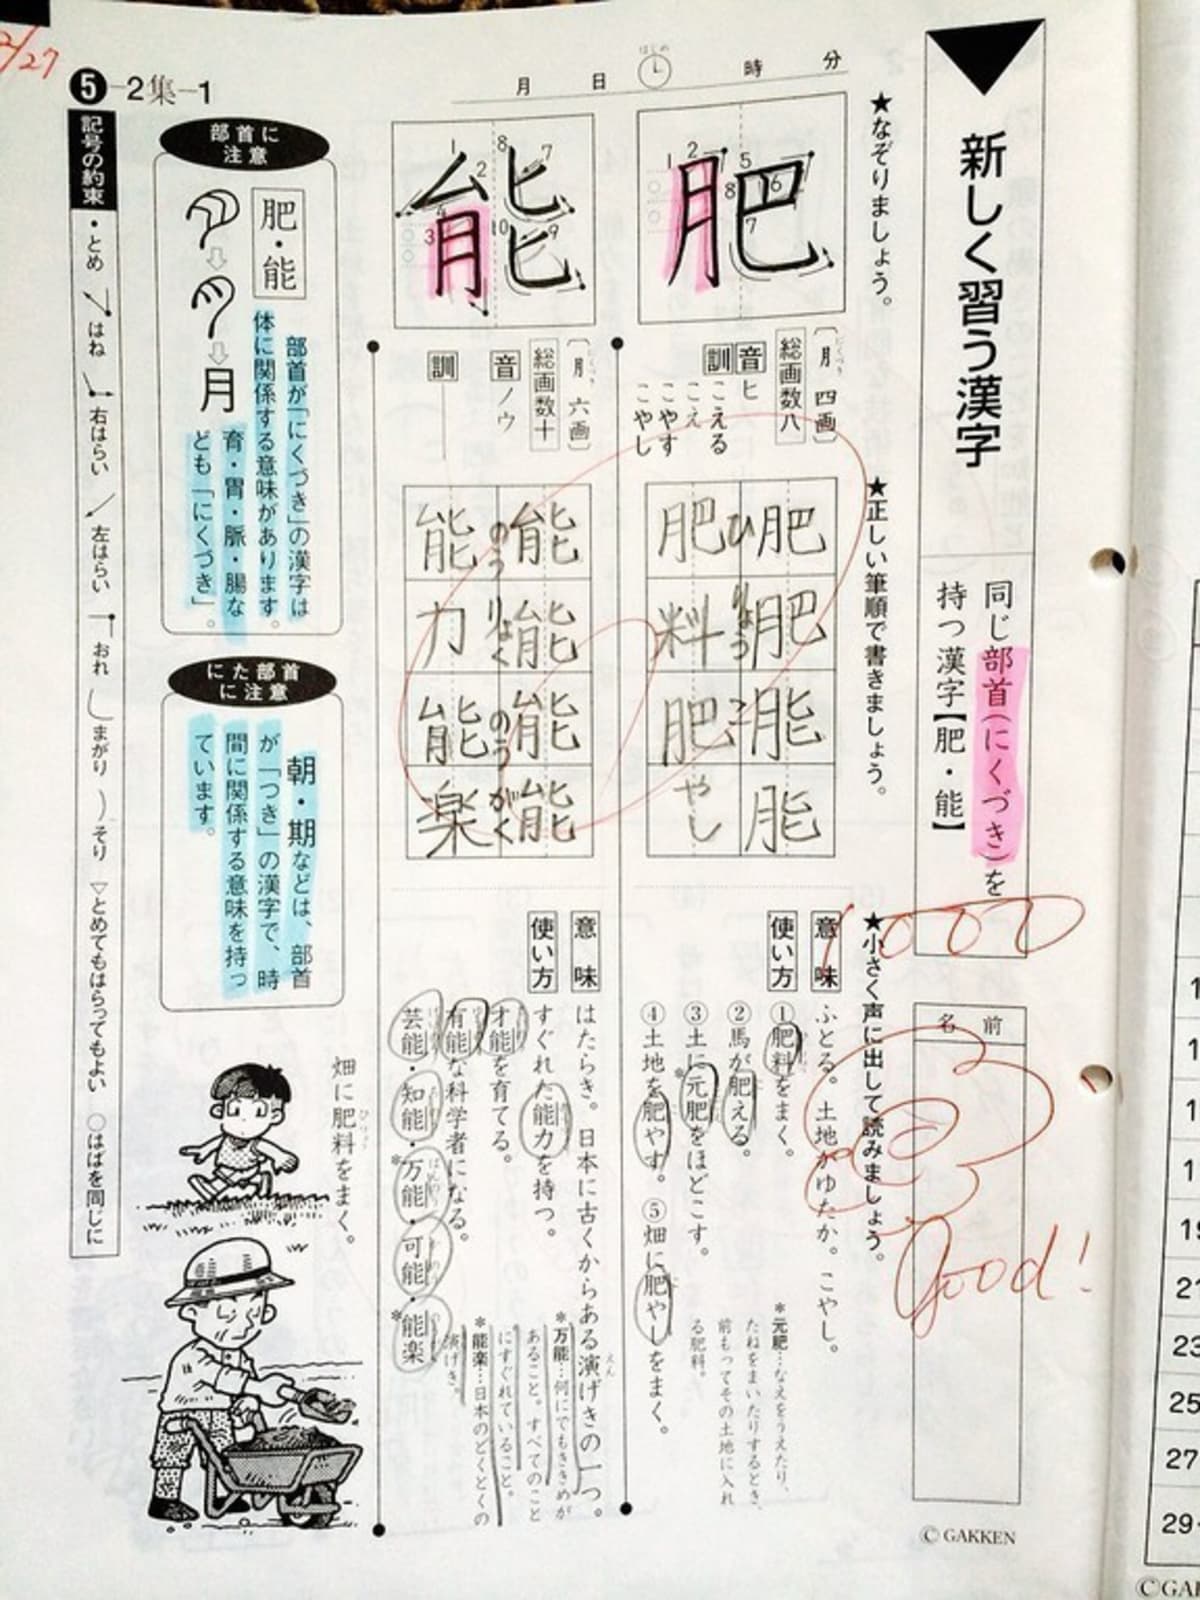 新しく習う漢字
同じ部首(にくづき)を
持つ漢字【肥・能】
名前
© GAKKEN
★なぞりましょう。
★正しい筆順で書きましょう。
★小さく声に出して読みましょう。
1000
Good!
月 日 はじめ 時 分
肥
〔月 にくづき 四画〕
総画数八
音 ヒ
訓 こえる
こえ
こやす
こやし
肥肥能能
ひりょうこ
肥料肥やし
意味 ふとる。土地がゆたか。こやし。
使い方 ①肥料をまく。
②馬が肥える。
③土に元肥をほどこす。
④土地を肥やす。 ⑤畑に肥やしをまく。
*元肥…なえをうえたり、
たねをまいたりするとき、
前もってその土地に入れ
る肥料。
能
〔月 にくづき 六画〕
総画数十
音 ノウ
訓
能能能能
のうりょくのうがく
能力能楽
意味 はたらき。日本に古くからある演げきの一つ。
使い方 すぐれた能力を持つ。
才能を育てる。
有能な科学者になる。
芸能・知能・*万能・可能・*能楽
*万能…何にでもききめが
あること。すべてのこと
にすぐれていること。
*能楽…日本のどくとくの
演げき。
2/27
5-2集-1
部首に注意
肥・能
部首が「にくづき」の漢字は
体に関係する意味があります。
育・胃・脈・腸な
ども「にくづき」。
月
にた部首に注意
朝・期などは、部首
が「つき」の漢字で、時
間に関係する意味を持っ
ています。
畑に肥料をまく。
記号の約束 ・とめ はね 右はらい 左はらい おれ まがり そり ▽とめてもはらってもよい ○はばを同じに
19
23
25
27
29
©GA